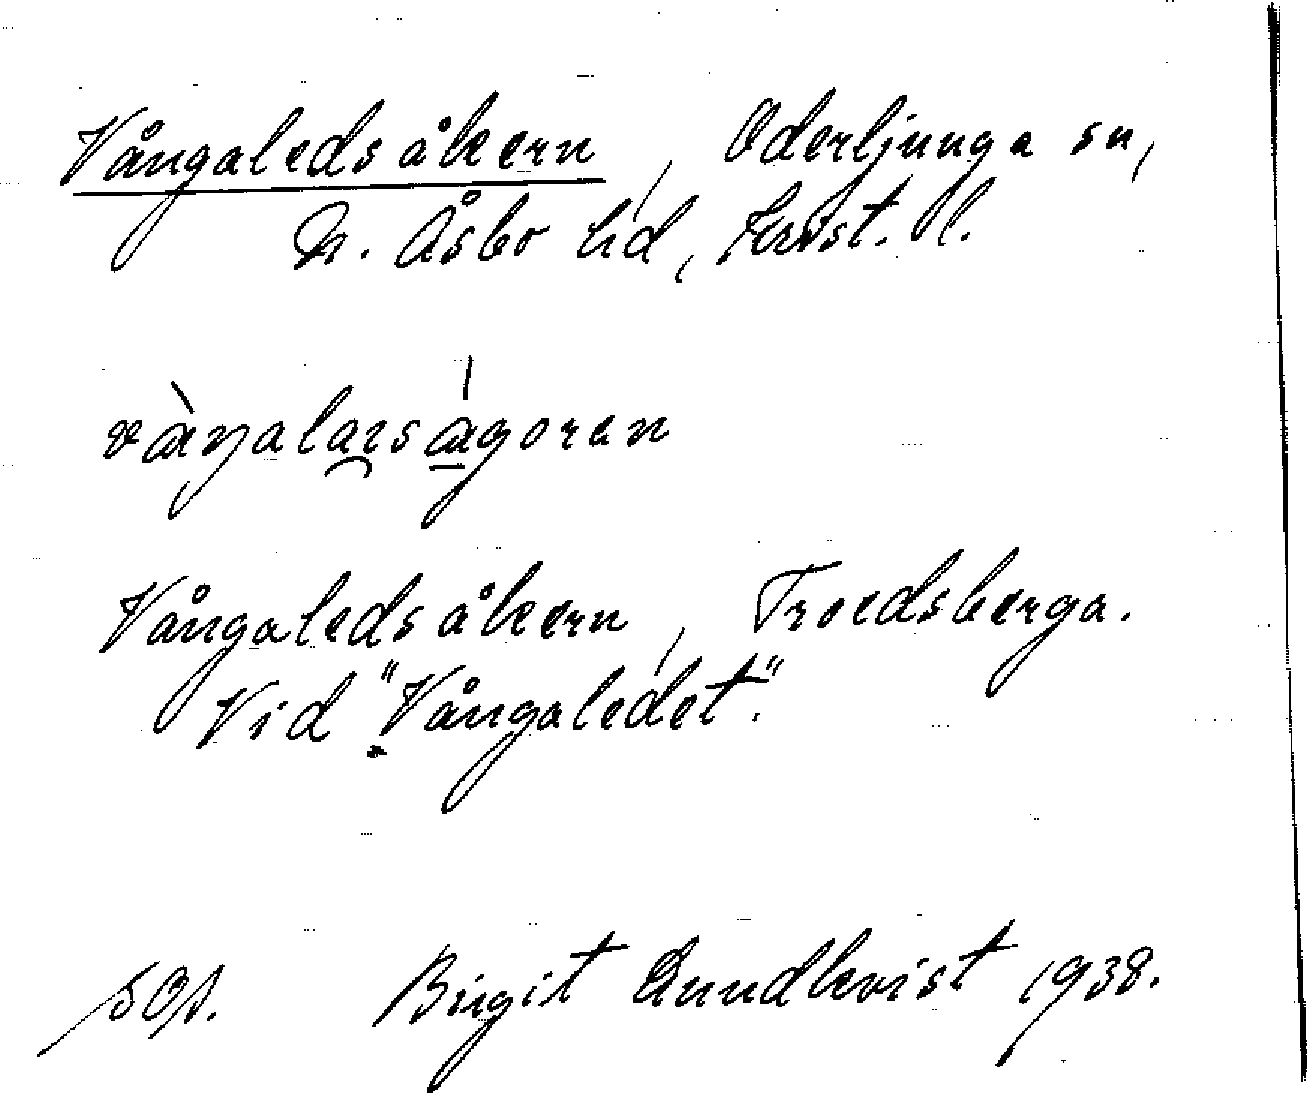 Vångaledsåkern, Oderljunga sn,
N. Åsbo hd, Krist. l.
Vångaledsåkern, Troedsberga.
Vid "Vångaledet".
Birgit Lundkvist 1938.